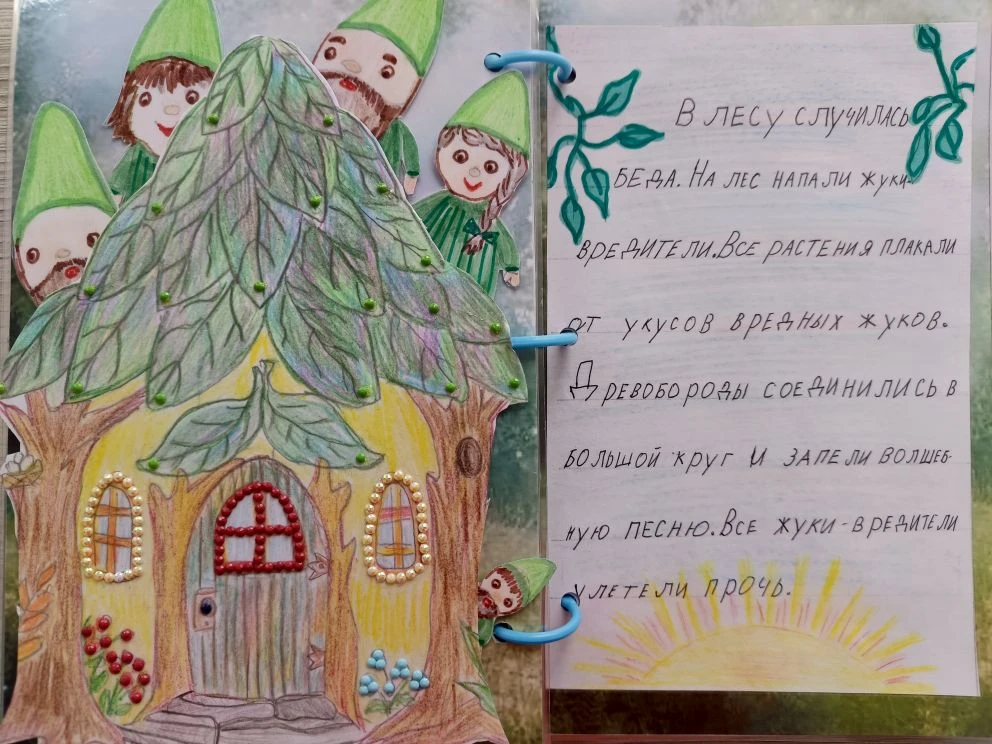 В ЛЕСУ СЛУЧИЛАСЬ
БЕДА. НА ЛЕС НАПАЛИ ЖУКИ-
ВРЕДИТЕЛИ. ВСЕ РАСТЕНИЯ ПЛАКАЛИ
ОТ УКУСОВ ВРЕДНЫХ ЖУКОВ.
ДРЕВОБОРОДЫ СОЕДИНИЛИСЬ В
БОЛЬШОЙ КРУГ И ЗАПЕЛИ ВОЛШЕБ-
НУЮ ПЕСНЮ. ВСЕ ЖУКИ-ВРЕДИТЕЛИ
УЛЕТЕЛИ ПРОЧЬ.